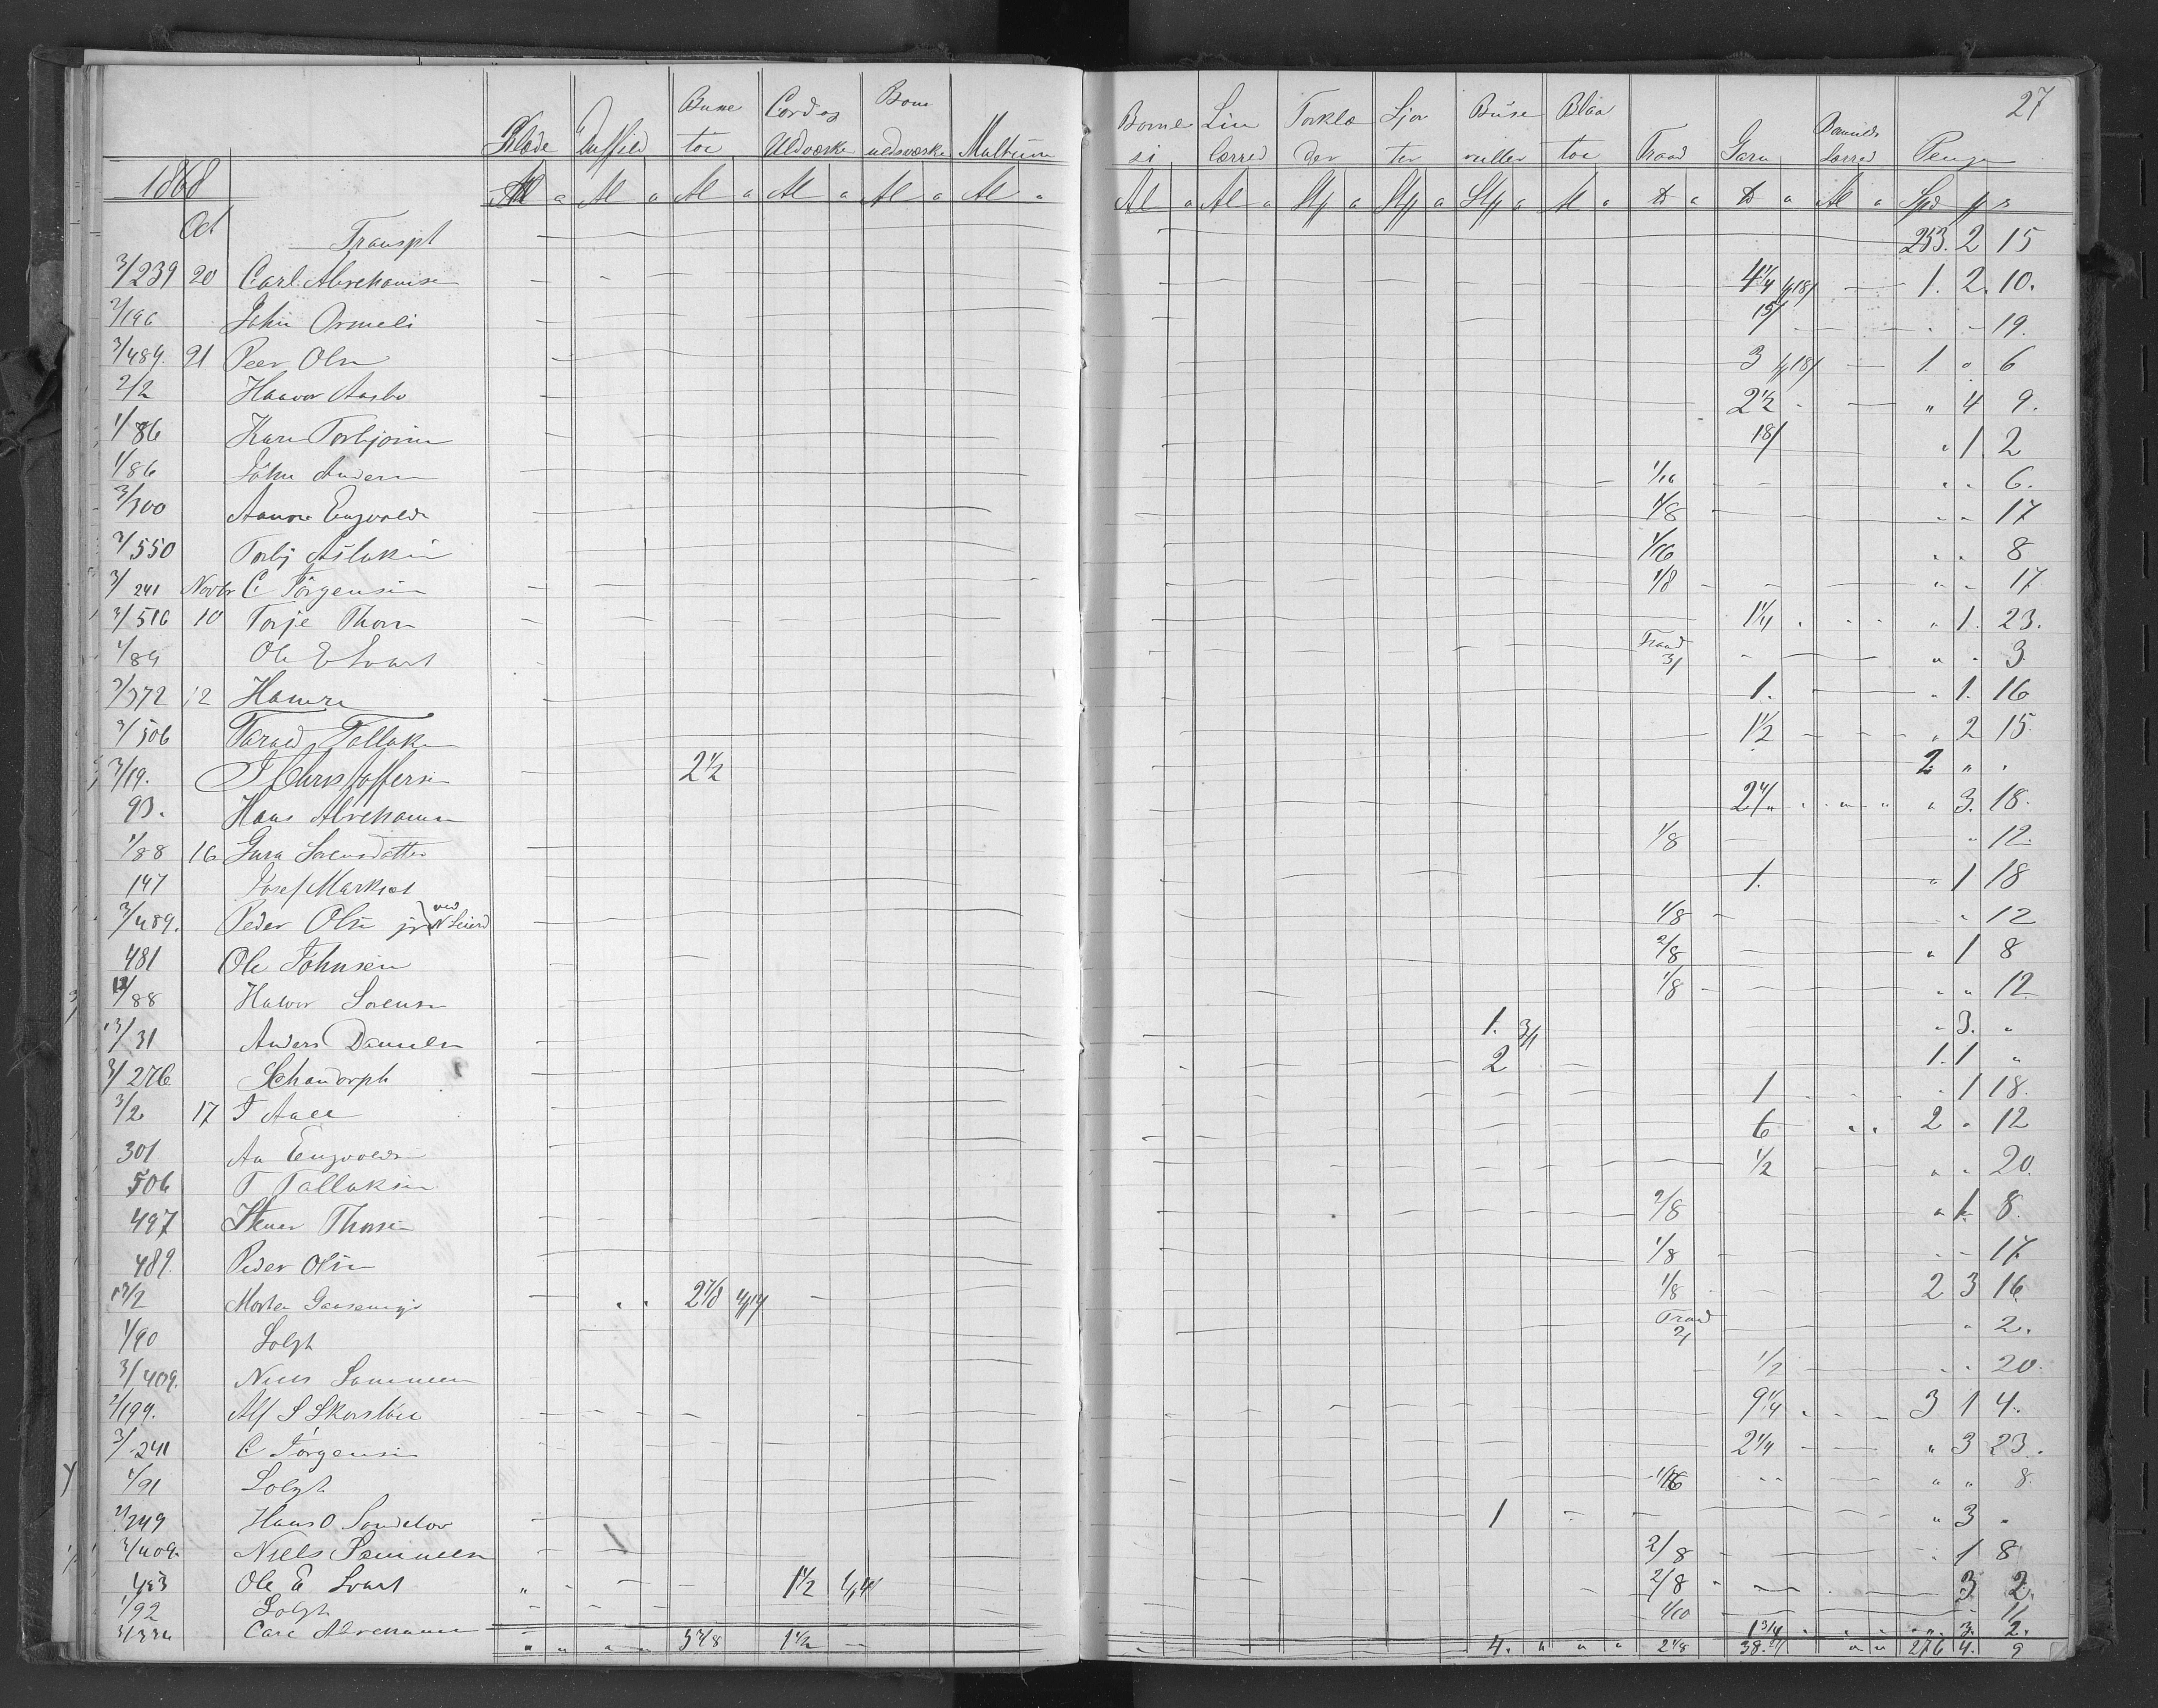 27
Klæde Duffild Buxe toi Cord og Uldværke Bom uldsværke Multum Bome si Lin lærred Torklæ der Sjor ter Buse ruller Blaa toi Traad Garn Bomulds Lærred Penge
1868 Al a Al a Al a Al a Al a Al a Al a Al a Stk a Stk a Stk a Al a ℔ a ℔ a Al a Spd
Oct Transpt 253. 2 15
3/239 20 Carl Abrehamsen 4 1/4 18/ 1. 2. 10.
2/196 John Ormeli 15/ 19.
3/489. 21 Peer Olsn 3 18/ 1. " 6
2/2 Haavor Aasbo 2 1/2 " 4 9.
1/86 Karn Torbjorn 18/ " 1. 2
1/86 John Andersn 1/16 " " 6.
3/300 Aanon Engvolds 1/8 " " 17
2/550 Torbj Aslaksn 1/16 " " 8
3/241 Novbr C Jörgensen 1/8 " " 17
3/516 10 Torje Thorsn 1 1/4 " 1. 23.
1/89 Ole E Svart Traad 3/ " " 3
3/372 12 Hamre 1. " 1. 16
3/506 Tarald Tallaks 1 1/2 " 2 15.
3/19. J Christoffersen 2 1/2 2. " "
93. Hans Abrehamsn 2 1/4 " 3. 18.
1/88 16 Gura Sorensdatter 1/8 " 12.
147 Josef Marksæt 1. " 1 18
3/489. Peder Olsn jr ved N Sciord 1/8 " 12
481 Ole Johnsen 2/8 " 1 8
1/88 Halvor Sorensn 1/8 " " 12.
13/31 Anders Danielsn 1. 3/ " 3. "
3/276 Schandorph 2 1. 1 "
3/2 17 J Aall 1 " 1 18.
301 Aa Engvoldsn 6 2 " 12
506 T Tallaksen 1/2 " " 20.
497 Stener Thorsen 2/8 " 1. 8.
489. Peder Olsn 1/8 " " 17.
13/2 Morten Gaasemyr 2 7/8 1/8 2 3 16
1/90 Solgt Traad 2/ " 2.
3/409. Niels Sammeen 1/2 " " 20.
2/199. Alf S Skorstöil 9 1/4 3 1 4.
3/241 C Jörgensen 2 1/4 " 3 23.
1/91 Solgt 1/16 " " 8.
2/249 Hans O Sondelov 1 " 3 "
3/409. Niels Sammeen 2/8 " 1 8
483 Ole E Svart " 1 1/2 2/8 3 2.
1/92 Solgt 1/10 11
3/334 Carl Abrehamsn 1 3/4 " 3. 2.
" " " " 5 3/8 1 1/2 4. " " " 2 1/8 38. " " 276 4. 9